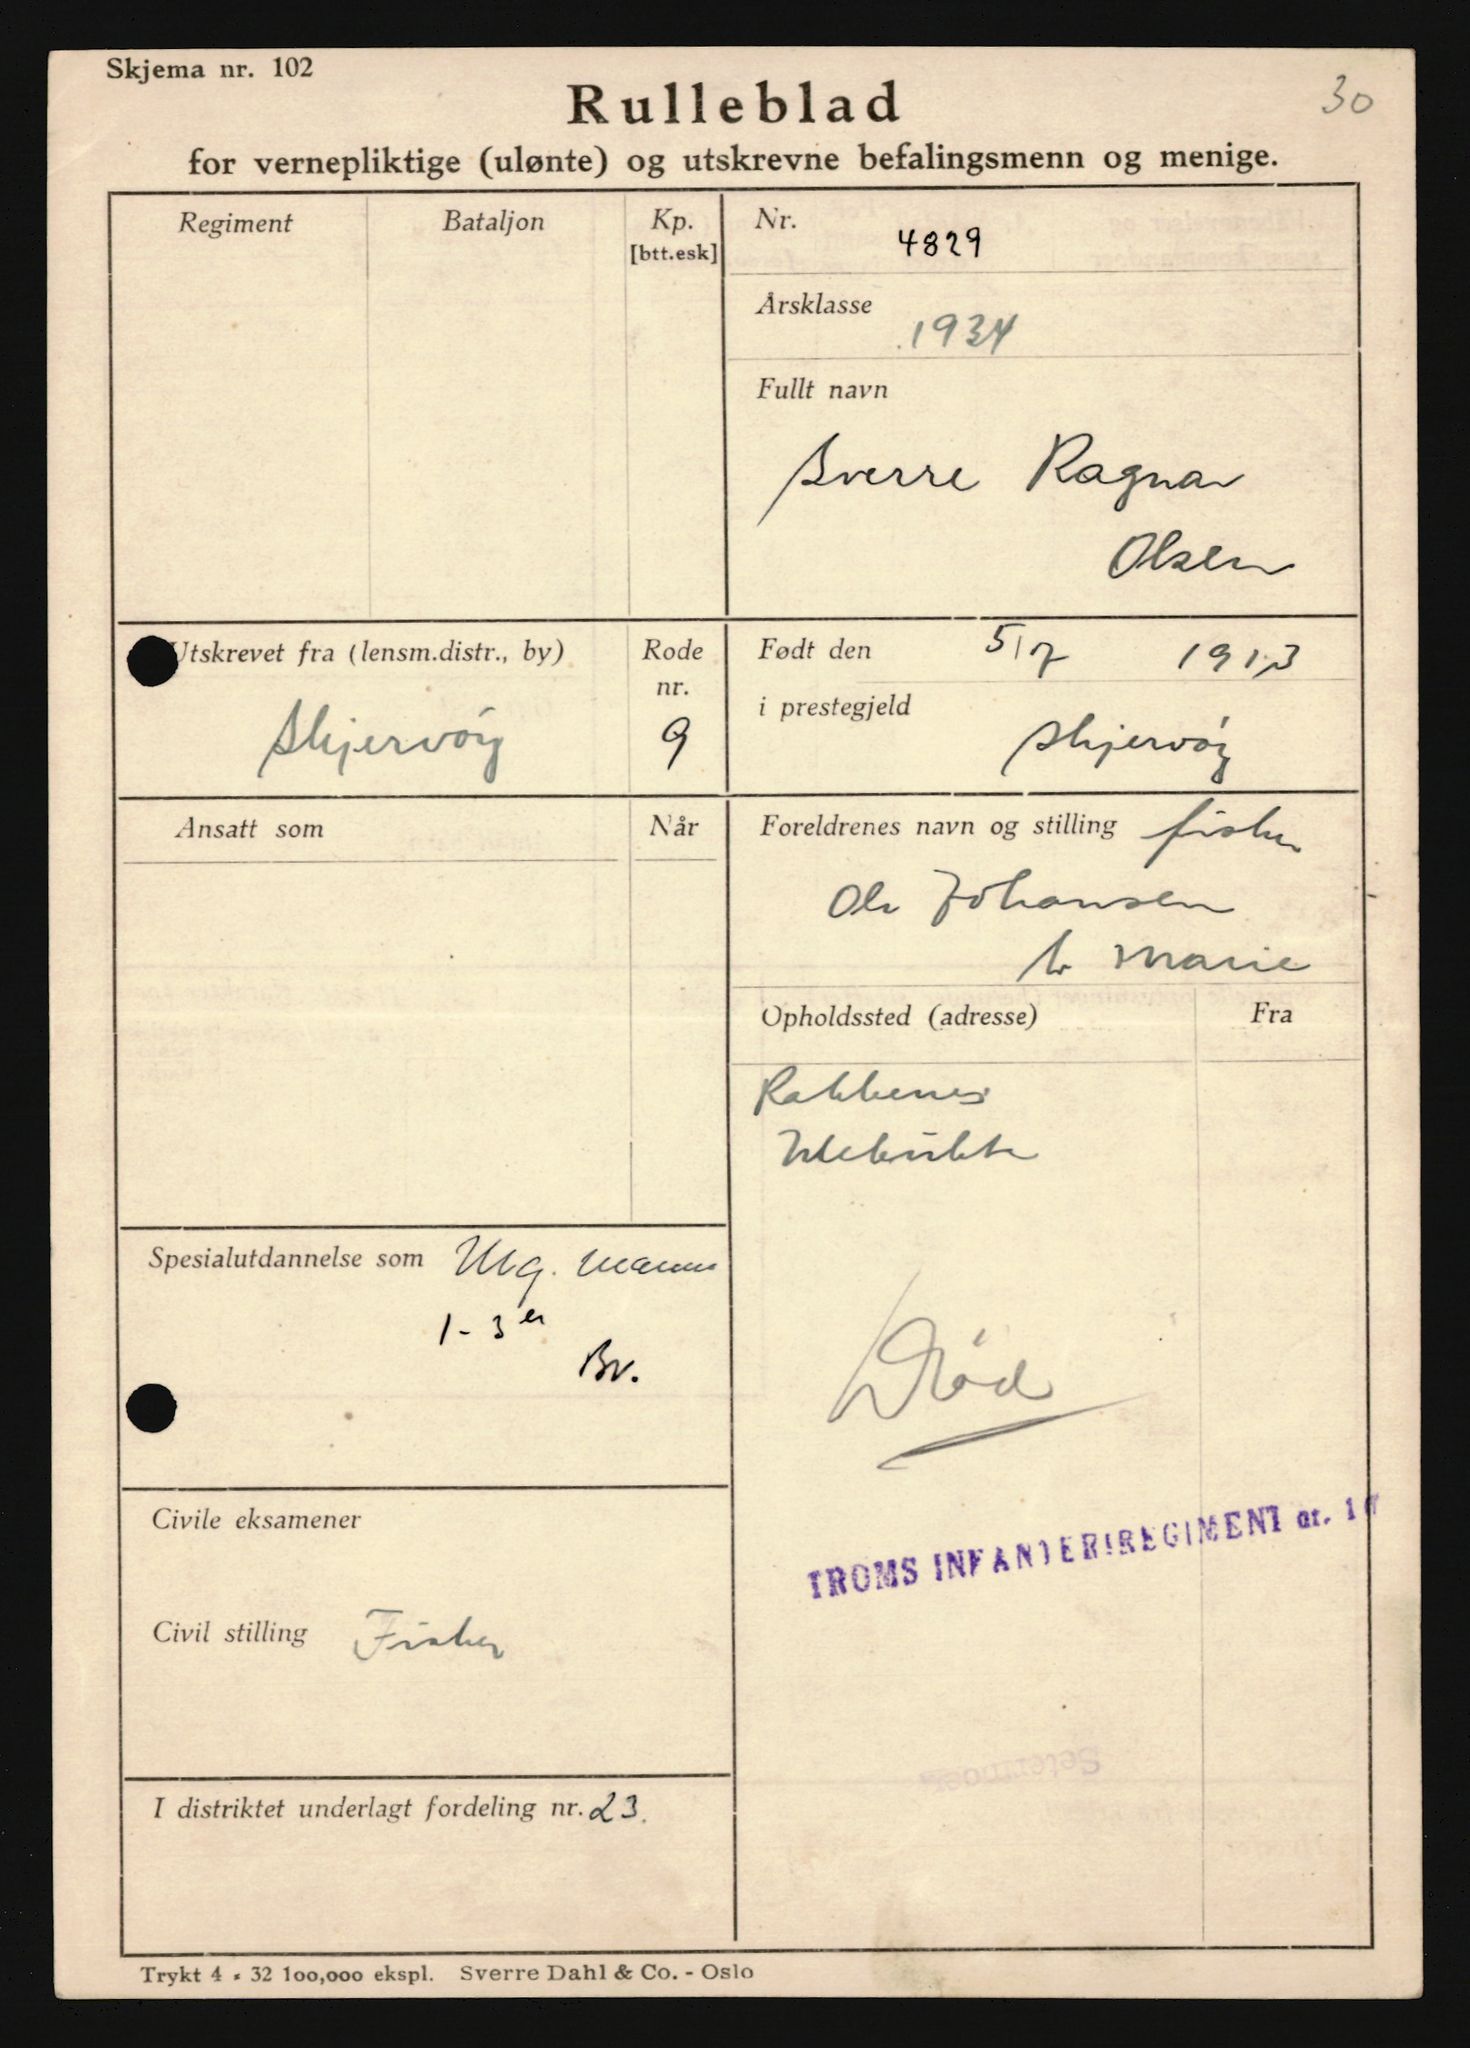 Skjema nr. 102
30
Rulleblad
for vernepliktige (ulønte) og utskrevne befalingsmenn og menige.
Regiment
Bataljon
Kp.
[btt.esk]
Nr.
4829
Årsklasse
1934
Fullt navn
Sverre Ragnar
Olsen
Utskrevet fra (lensm.distr., by)
Skjervöy
Rode
nr.
9
Født den 5/7 1913
i prestegjeld
Skjervöy
Ansatt som
Når
Foreldrenes navn og stilling fisker
Ole Johansen
h. Marie
Opholdssted (adresse)
Fra
Rakkenes
Spesialutdannelse som Mg. mann
1-3 er
Br.
Död
Civile eksamener
TROMS INFANTERIREGIMENT nr. 16
Civil stilling Fisker
Setermoen
I distriktet underlagt fordeling nr. 23.
Trykt 4 - 32 100,000 ekspl. Sverre Dahl & Co. - Oslo